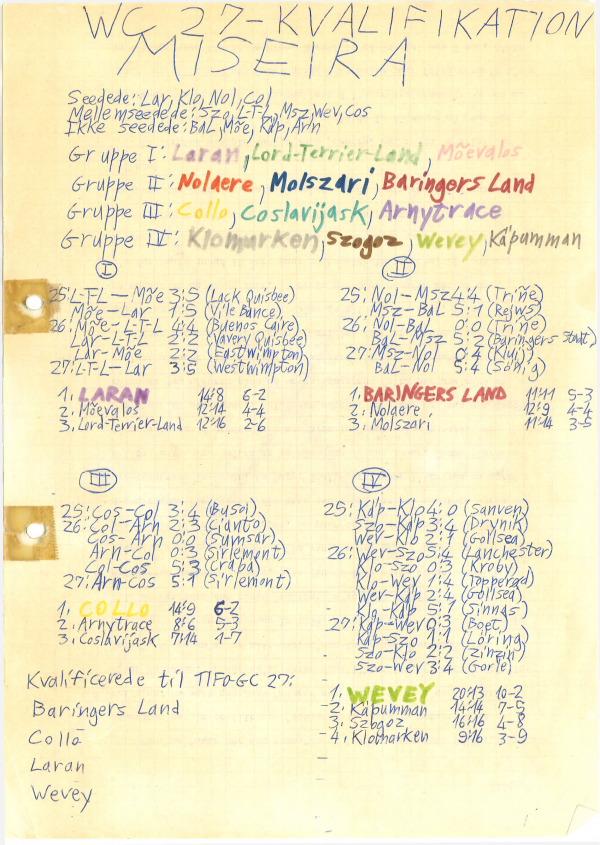 WC 27-KVALIFIKATION
MISEIRA
Seedede: Lar, Klo, Nol, Col
Mellemseedede: Szo, L-T-L, Msz, Wev, Cos
Ikke seedede: BaL, Mõe, Káp, Arn
Gruppe I: Laran, Lord-Terrier-Land, Mõevalos
Gruppe II: Nolaere, Molszari, Baringers Land
Gruppe III: Collo, Coslavijask, Arnytrace
Gruppe IV: Klomarken, Szogoz, Wevey, Kápumman
I
25: L-T-L — Mõe 3:5 (Lack Quisbee)
Mõe-Lar 1:5 (Vile Bance)
26: Mõe-L-T-L 4:4 (Buenos Caire)
Lar-L-T-L 2:2 (Navery Quisbee)
Lar-Mõe 2:2 (Eastwimpton)
27: L-T-L-Lar 3:5 (Westwimpton)
1. LARAN 14:8 6-2
2. Mõevalos 12:14 4-4
3. Lord-Terrier-Land 12:16 2-6
II
25: Nol-Msz 4:4 (Triñe)
Msz-BaL 5:1 (Rejws)
26: Nol-BaL 0:0 (Triñe)
BaL-Msz 5:2 (Baringers Stadt)
27: Msz-Nol 0:4 (Kluij)
BaL-Nol 5:4 (Sönig)
1. BARINGERS LAND 11:11 5-3
2. Nolaere 12:9 4-4
3. Molszari 11:14 3-5
III
25: Cos-Col 3:4 (Busoi)
26: Col-Arn 2:3 (Cianto)
Cos-Arn 0:0 (Sumsar)
Arn-Col 0:3 (Sirlemont)
Col-Cos 5:3 (Crapa)
27: Arn-Cos 5:1 (Sirlemont)
1. COLLO 14:9 6-2
2. Arnytrace 8:6 5-3
3. Coslavijask 7:14 1-7
IV
25: Káp-Klo 4:0 (Sanven)
Szo-Káp 3:4 (Drynik)
Wev-Klo 2:1 (Gollsea)
26: Wev-Szo 5:4 (Lanchester)
Klo-Szo 0:3 (Kroby)
Klo-Wev 1:4 (Topperad)
Wev-Káp 2:4 (Gollsea)
Klo-Káp 5:1 (Sinnas)
27: Káp-Wev 0:3 (Boet)
Káp-Szo 1:1 (Lorina)
Szo-Klo 2:2 (Zinzin)
Szo-Wev 3:4 (Gorle)
1. WEVEY 20:13 10-2
2. Kápumman 14:14 7-5
3. Szogoz 16:16 4-8
4. Klomarken 9:16 3-9
Kvalificerede til TIFO-GC 27:
Baringers Land
Collo
Laran
Wevey